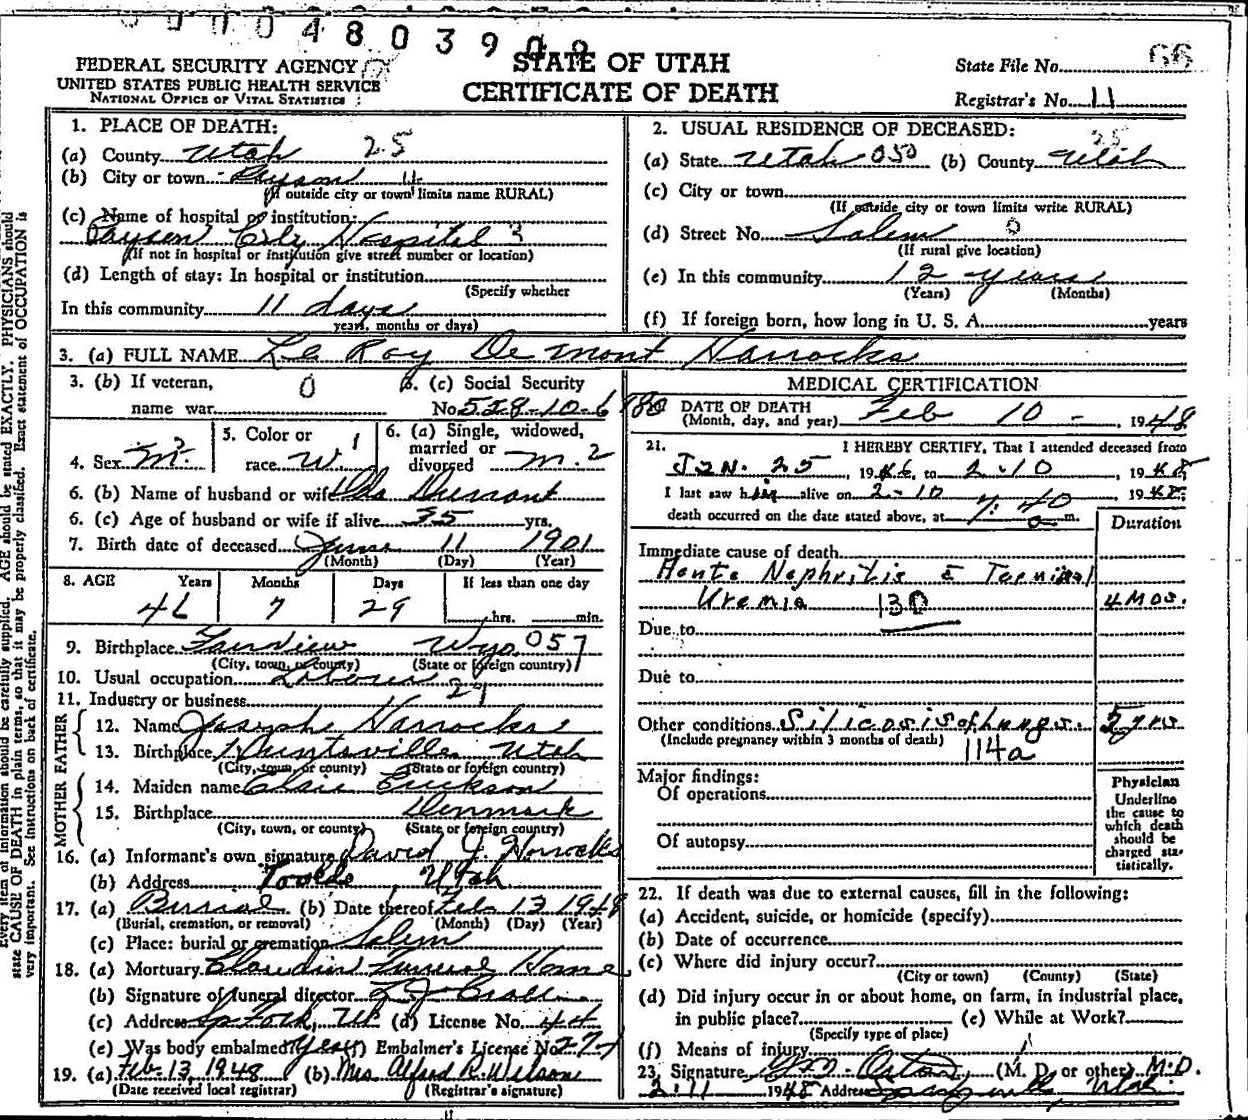 0 0 0 4 8 0 3 9
FEDERAL SECURITY AGENCY
UNITED STATES PUBLIC HEALTH SERVICE
NATIONAL OFFICE OF VITAL STATISTICS
STATE OF UTAH
CERTIFICATE OF DEATH
State File No. 66
Registrar's No. 11
1. PLACE OF DEATH:
(a) County Utah 25
(b) City or town Payson
(If outside city or town limits name RURAL)
(c) Name of hospital or institution:
Payson City Hospital 3
(If not in hospital or institution give street number or location)
(d) Length of stay: In hospital or institution
(Specify whether
In this community 11 days
years, months or days)
2. USUAL RESIDENCE OF DECEASED:
25
(a) State Utah 050 (b) County Utah
(c) City or town
(If outside city or town limits write RURAL)
(d) Street No. Salem 0
(If rural give location)
(e) In this community 12 years
(Years) (Months)
(f) If foreign born, how long in U. S. A. years
3. (a) FULL NAME Le Roy De mont Harrocks
3. (b) If veteran, 0
name war
3. (c) Social Security
No. 528-10-6180
4. Sex M.
5. Color or
race W 1
6. (a) Single, widowed,
married or
divorced m. 2
6. (b) Name of husband or wife Durrant
6. (c) Age of husband or wife if alive 35 yrs.
7. Birth date of deceased June 11 1901
(Month) (Day) (Year)
8. AGE Years Months Days If less than one day
46 7 29 hrs. min.
9. Birthplace Wyo. 057
(City, town, or county) (State or foreign country)
10. Usual occupation Laborer
11. Industry or business 29
FATHER
12. Name Josephe Harrocks
13. Birthplace Huntsville Utah
(City, town, or county) (State or foreign country)
MOTHER
14. Maiden name Erickson
15. Birthplace Denmark
(City, town, or county) (State or foreign country)
16. (a) Informant's own signature David J. Horrocks
(b) Address Tooele Utah
17. (a) Burial (b) Date thereof Feb 13 1948
(Burial, cremation, or removal) (Month) (Day) (Year)
(c) Place: burial or cremation Salem
18. (a) Mortuary Claudin Funeral Home
(b) Signature of funeral director
(c) Address Sp Fork, Ut (d) License No. 44
(e) Was body embalmed? Yes (f) Embalmer's License No. 277
19. (a) Feb. 13, 1948 (b) Mrs. Alfred R. Wilson
(Date received local registrar) (Registrar's signature)
MEDICAL CERTIFICATION
DATE OF DEATH Feb 10 - , 1948
(Month, day, and year)
21. I HEREBY CERTIFY, That I attended deceased from
JAN. 25, 1946, to 2-10, 1948
I last saw him alive on 2-10, 1948
death occurred on the date stated above, at 7:40 a m.
Duration
Immediate cause of death
Acute Nephritis c̄ Terminal
Uremia 130 4 mos.
Due to
Due to
Other conditions Silicosis of Lungs. 5 yrs
(Include pregnancy within 3 months of death) 114a
Major findings:
Of operations
Of autopsy
Physician
Underline
the cause to
which death
should be
charged sta-
tistically.
22. If death was due to external causes, fill in the following:
(a) Accident, suicide, or homicide (specify)
(b) Date of occurrence
(c) Where did injury occur?
(City or town) (County) (State)
(d) Did injury occur in or about home, on farm, in industrial place,
in public place? (e) While at Work?
(Specify type of place)
(f) Means of injury
23. Signature (M. D. or other) M.D.
2-11 1948 Address Utah.
Every item of information should be carefully supplied. AGE should be stated EXACTLY. PHYSICIANS should
state CAUSE OF DEATH in plain terms, so that it may be properly classified. Exact statement of OCCUPATION is
very important. See instructions on back of certificate.